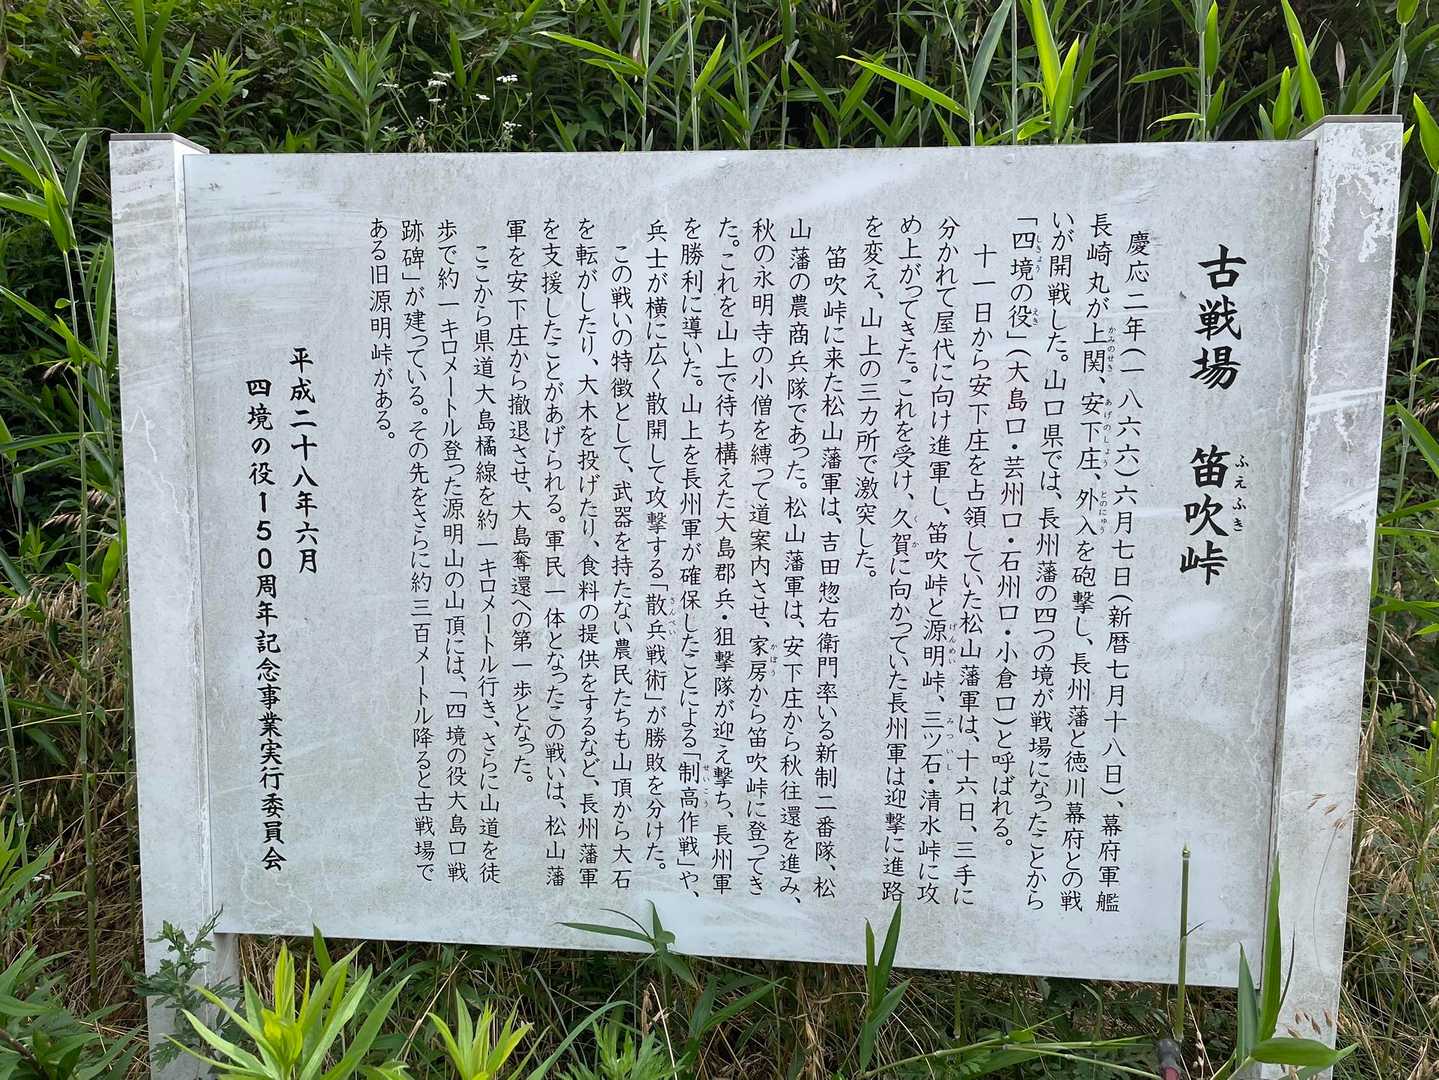 古戦場　笛吹峠
ふえふき
慶応二年(一八六六)六月七日(新暦七月十八日)、幕府軍艦
長崎丸が上関、安下庄、外入を砲撃し、長州藩と徳川幕府との戦
かみのせき　あげのしょう　とのにゅう
いが開戦した。山口県では、長州藩の四つの境が戦場になったことから
「四境の役」(大島口・芸州口・石州口・小倉口)と呼ばれる。
しきょう　えき
十一日から安下庄を占領していた松山藩軍は、十六日、三手に
分かれて屋代に向け進軍し、笛吹峠と源明峠、三ツ石・清水峠に攻
げんめい　みついし
め上がってきた。これを受け、久賀に向かっていた長州軍は迎撃に進路
くか
を変え、山上の三カ所で激突した。
笛吹峠に来た松山藩軍は、吉田惣右衛門率いる新制二番隊、松
山藩の農商兵隊であった。松山藩軍は、安下庄から秋往還を進み、
秋の永明寺の小僧を縛って道案内させ、家房から笛吹峠に登ってき
かぼう
た。これを山上で待ち構えた大島郡兵・狙撃隊が迎え撃ち、長州軍
を勝利に導いた。山上を長州軍が確保したことによる「制高作戦」や、
せいこう
兵士が横に広く散開して攻撃する「散兵戦術」が勝敗を分けた。
さんぺい
この戦いの特徴として、武器を持たない農民たちも山頂から大石
を転がしたり、大木を投げたり、食料の提供をするなど、長州藩軍
を支援したことがあげられる。軍民一体となったこの戦いは、松山藩
軍を安下庄から撤退させ、大島奪還への第一歩となった。
ここから県道大島橘線を約一キロメートル行き、さらに山道を徒
歩で約一キロメートル登った源明山の山頂には、「四境の役大島口戦
跡碑」が建っている。その先をさらに約三百メートル降ると古戦場で
ある旧源明峠がある。
平成二十八年六月
四境の役150周年記念事業実行委員会